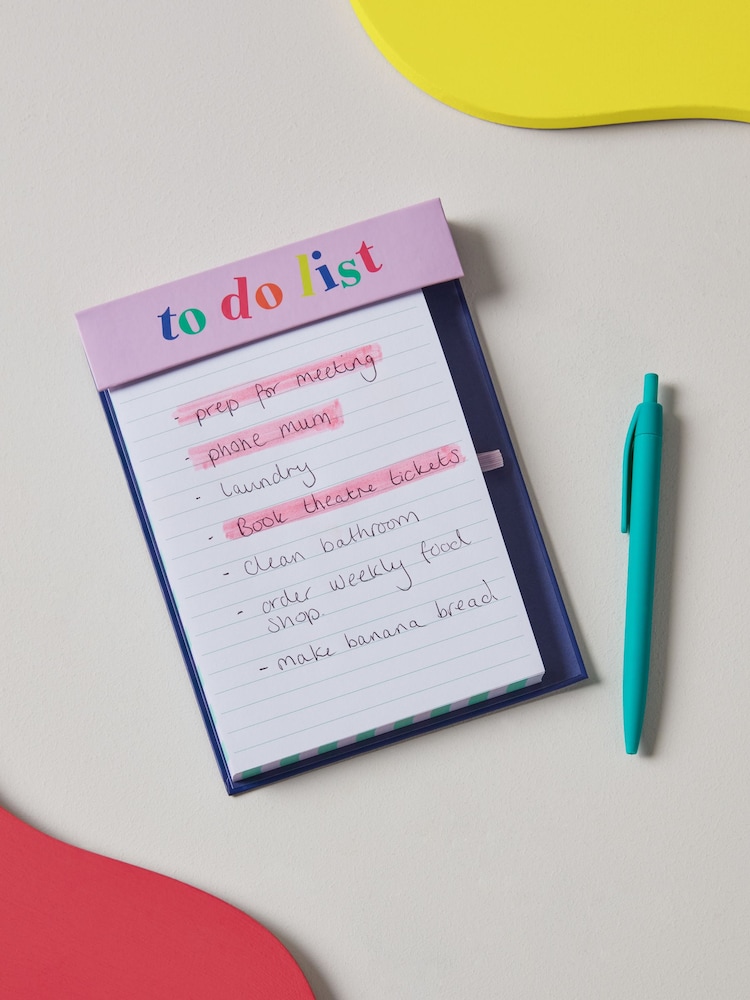 to do list
- prep for meeting
- phone mum
- laundry
- Book theatre tickets
- clean bathroom
- order weekly food
shop.
- make banana bread